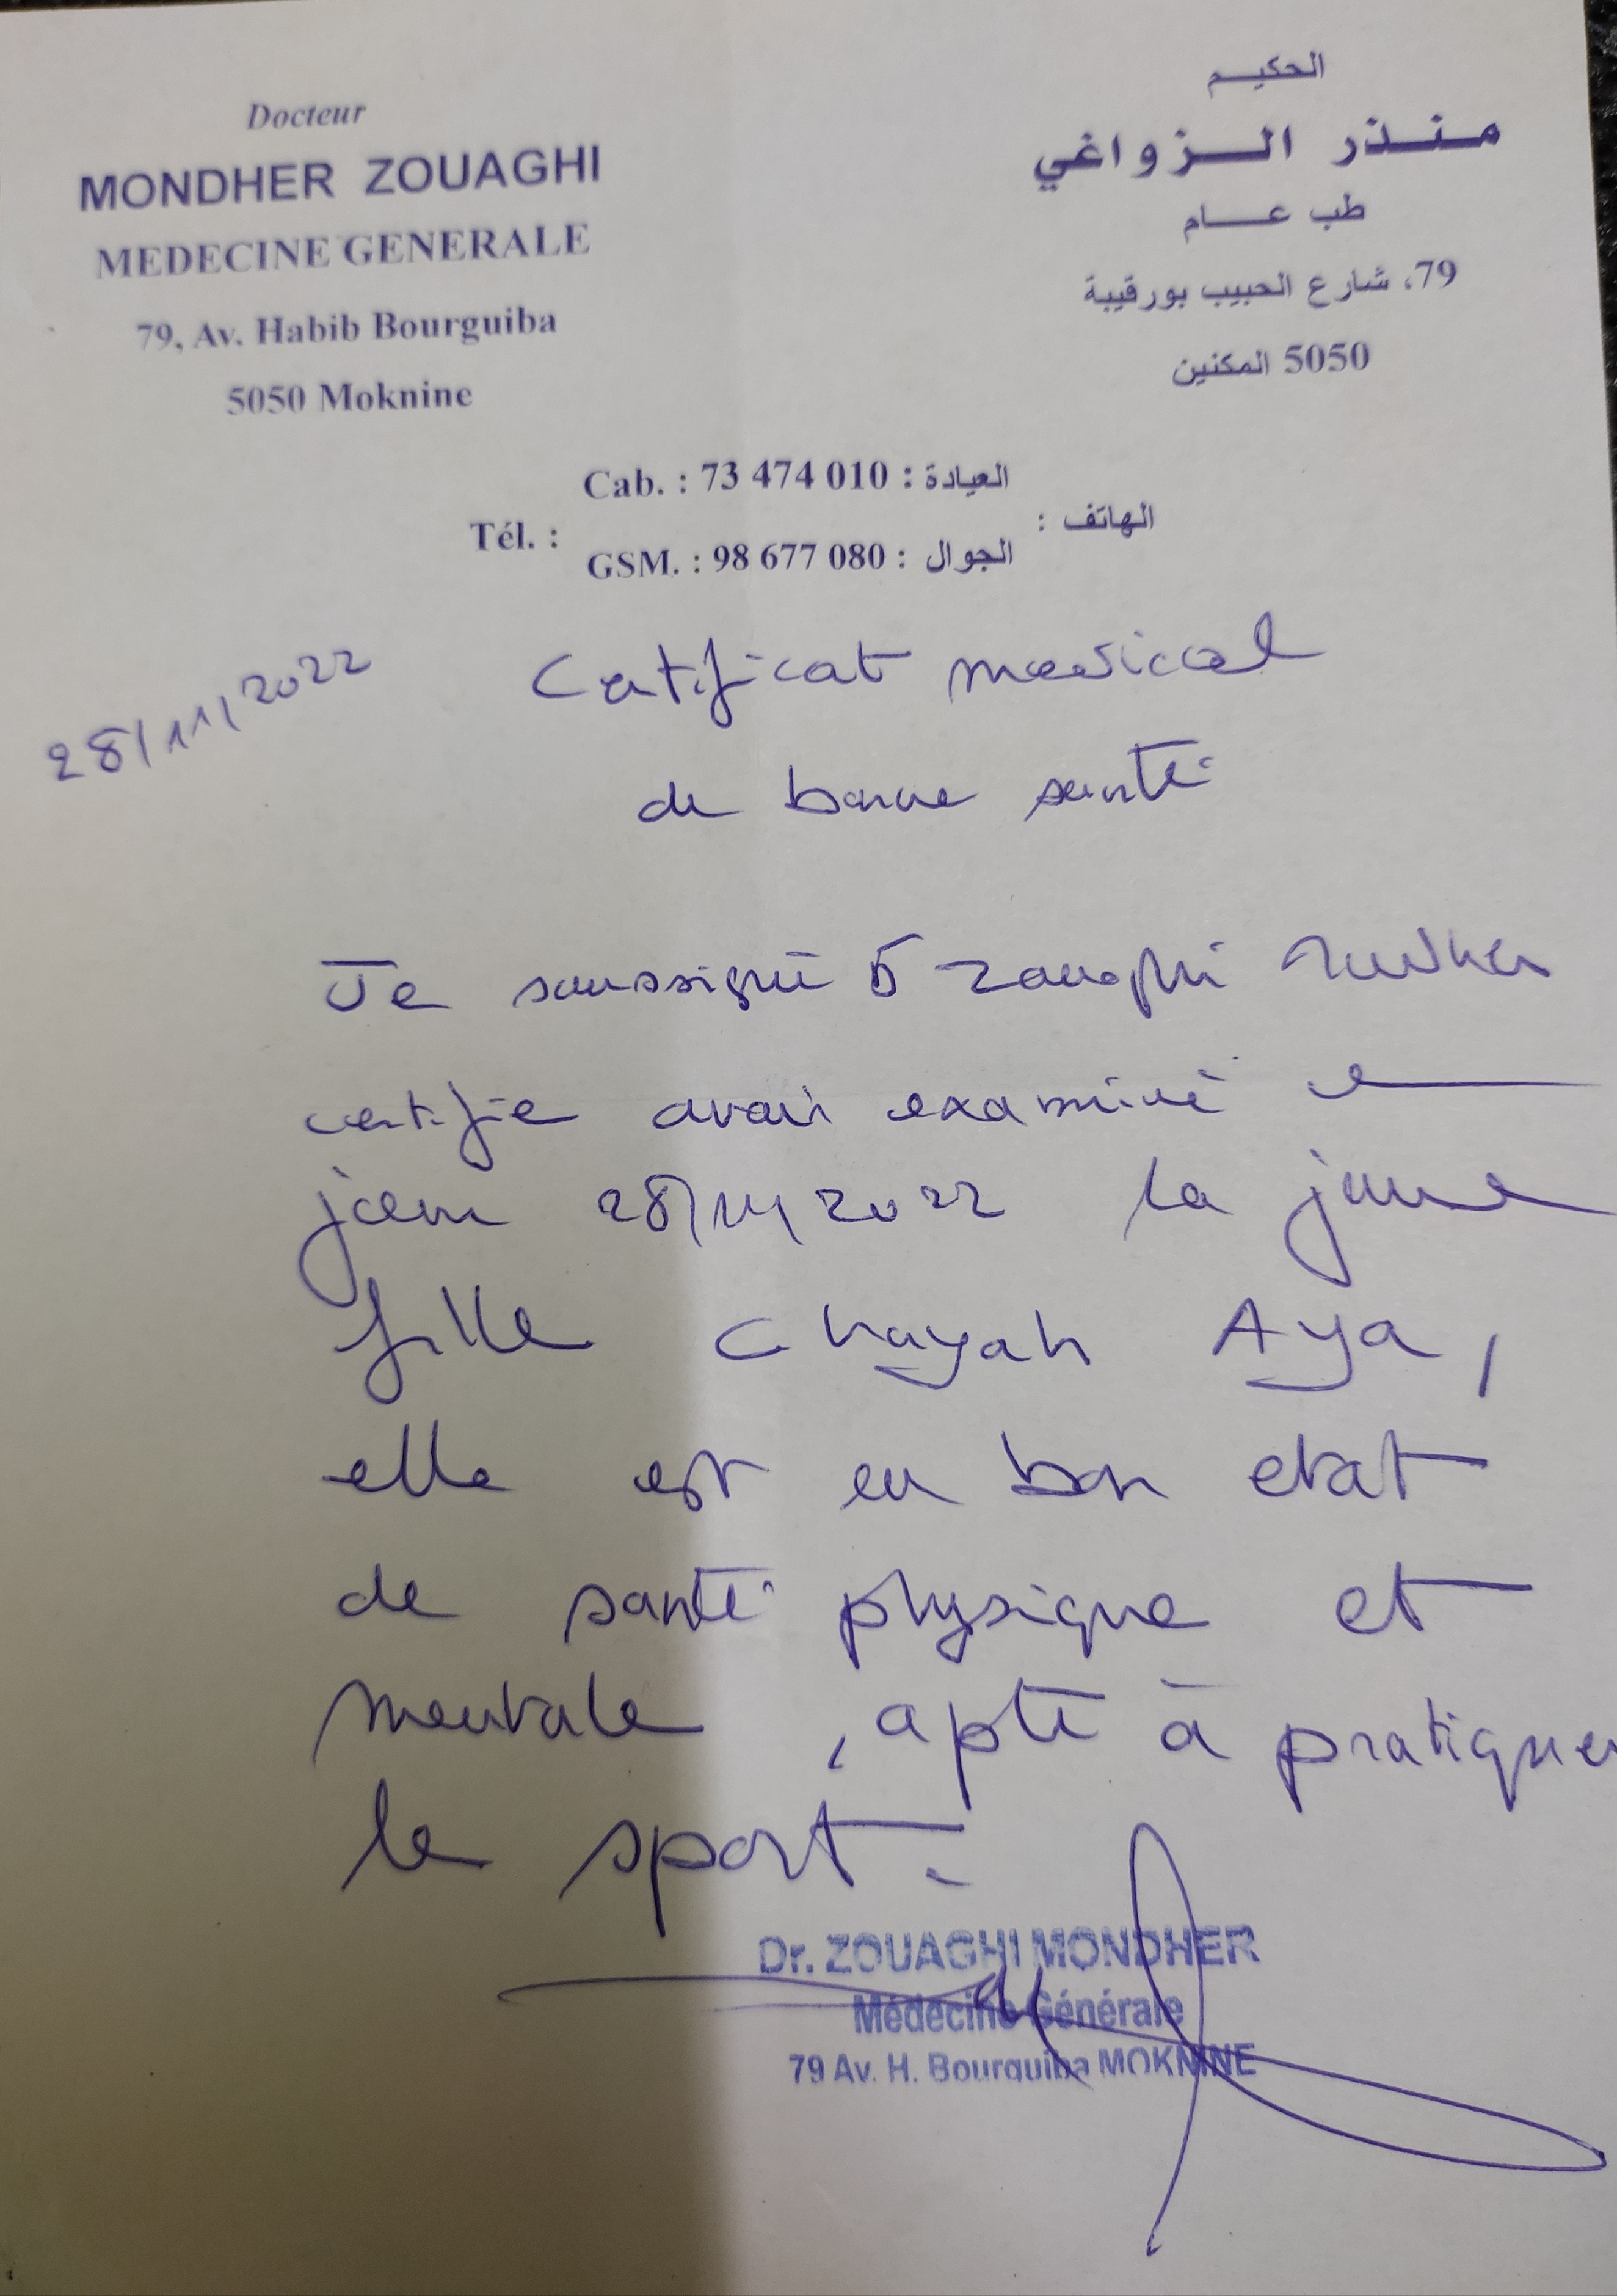 Docteur
MONDHER ZOUAGHI
MEDECINE GENERALE
79, Av. Habib Bourguiba
5050 Moknine
الحكيم
منذر الزواغي
طب عام
79، شارع الحبيب بورقيبة
5050 المكنين
Tél. : Cab. : 73 474 010 : العيادة الهاتف :
GSM. : 98 677 080 : الجوال
28/11/2022
Certificat medical
de bonne santé
Je soussigné Dr Zouaghi Mondher
certifie avoir examiné ce
jour 28/11/2022 la jeune
fille Chayah Aya,
elle est en bon etat
de santé physique et
mentale, apte à pratiquer
le sport.
Dr. ZOUAGHI MONDHER
Médecine Générale
79 Av. H. Bourguiba MOKNINE